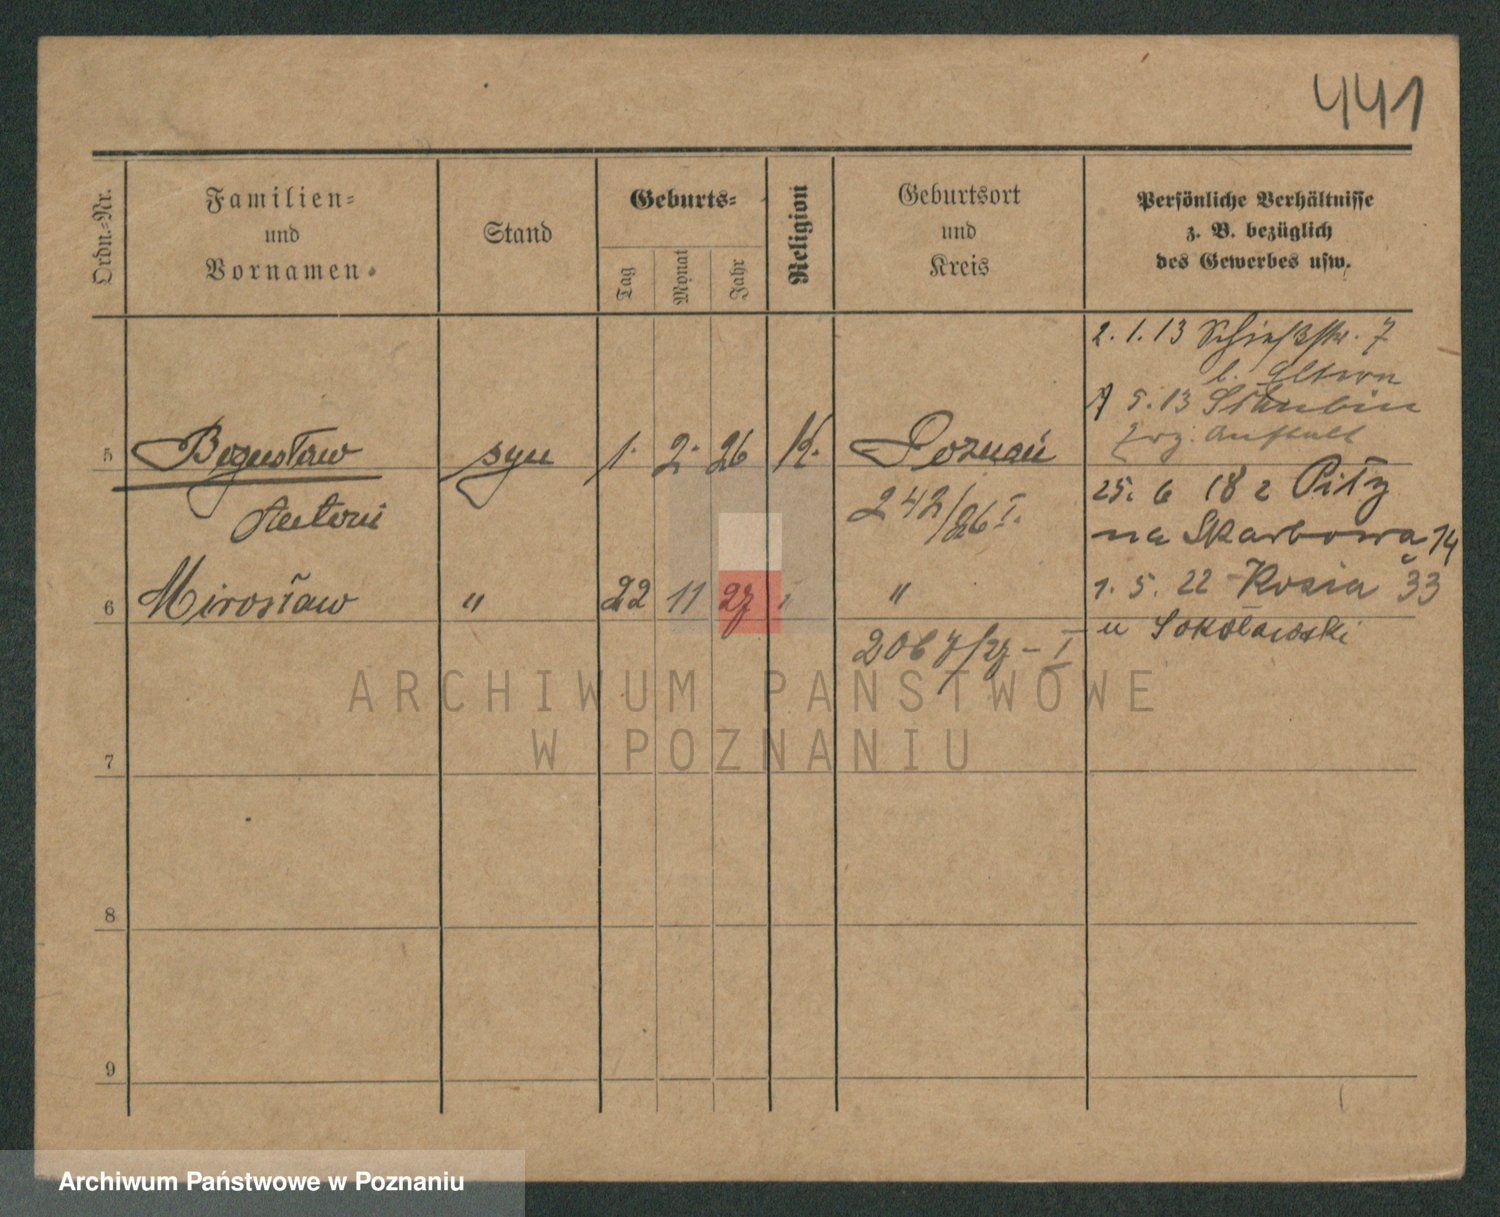 441
Ordn.-Nr.
Familien-
und
Vornamen.
Stand
Geburts-
Tag
Monat
Jahr
Religion
Geburtsort
und
Kreis
Persönliche Verhältnisse
z. B. bezüglich
des Gewerbes usw.
2. 1. 13 Schießstr. 7
b. Eltern
5. 13 Schubin
Erz. Anstalt
5 Bogusław syn 1. 2. 26 K. Poznań
Antoni 242/26 I.
25. 6 18 z Piły
na Skarbowa 14
6 Mirosław " 22 11 27 " "
1. 5. 22 Kosia 33
u Sokołowski
2067/27 - I
7
8
9
ARCHIWUM PAŃSTWOWE
W POZNANIU
Archiwum Państwowe w Poznaniu